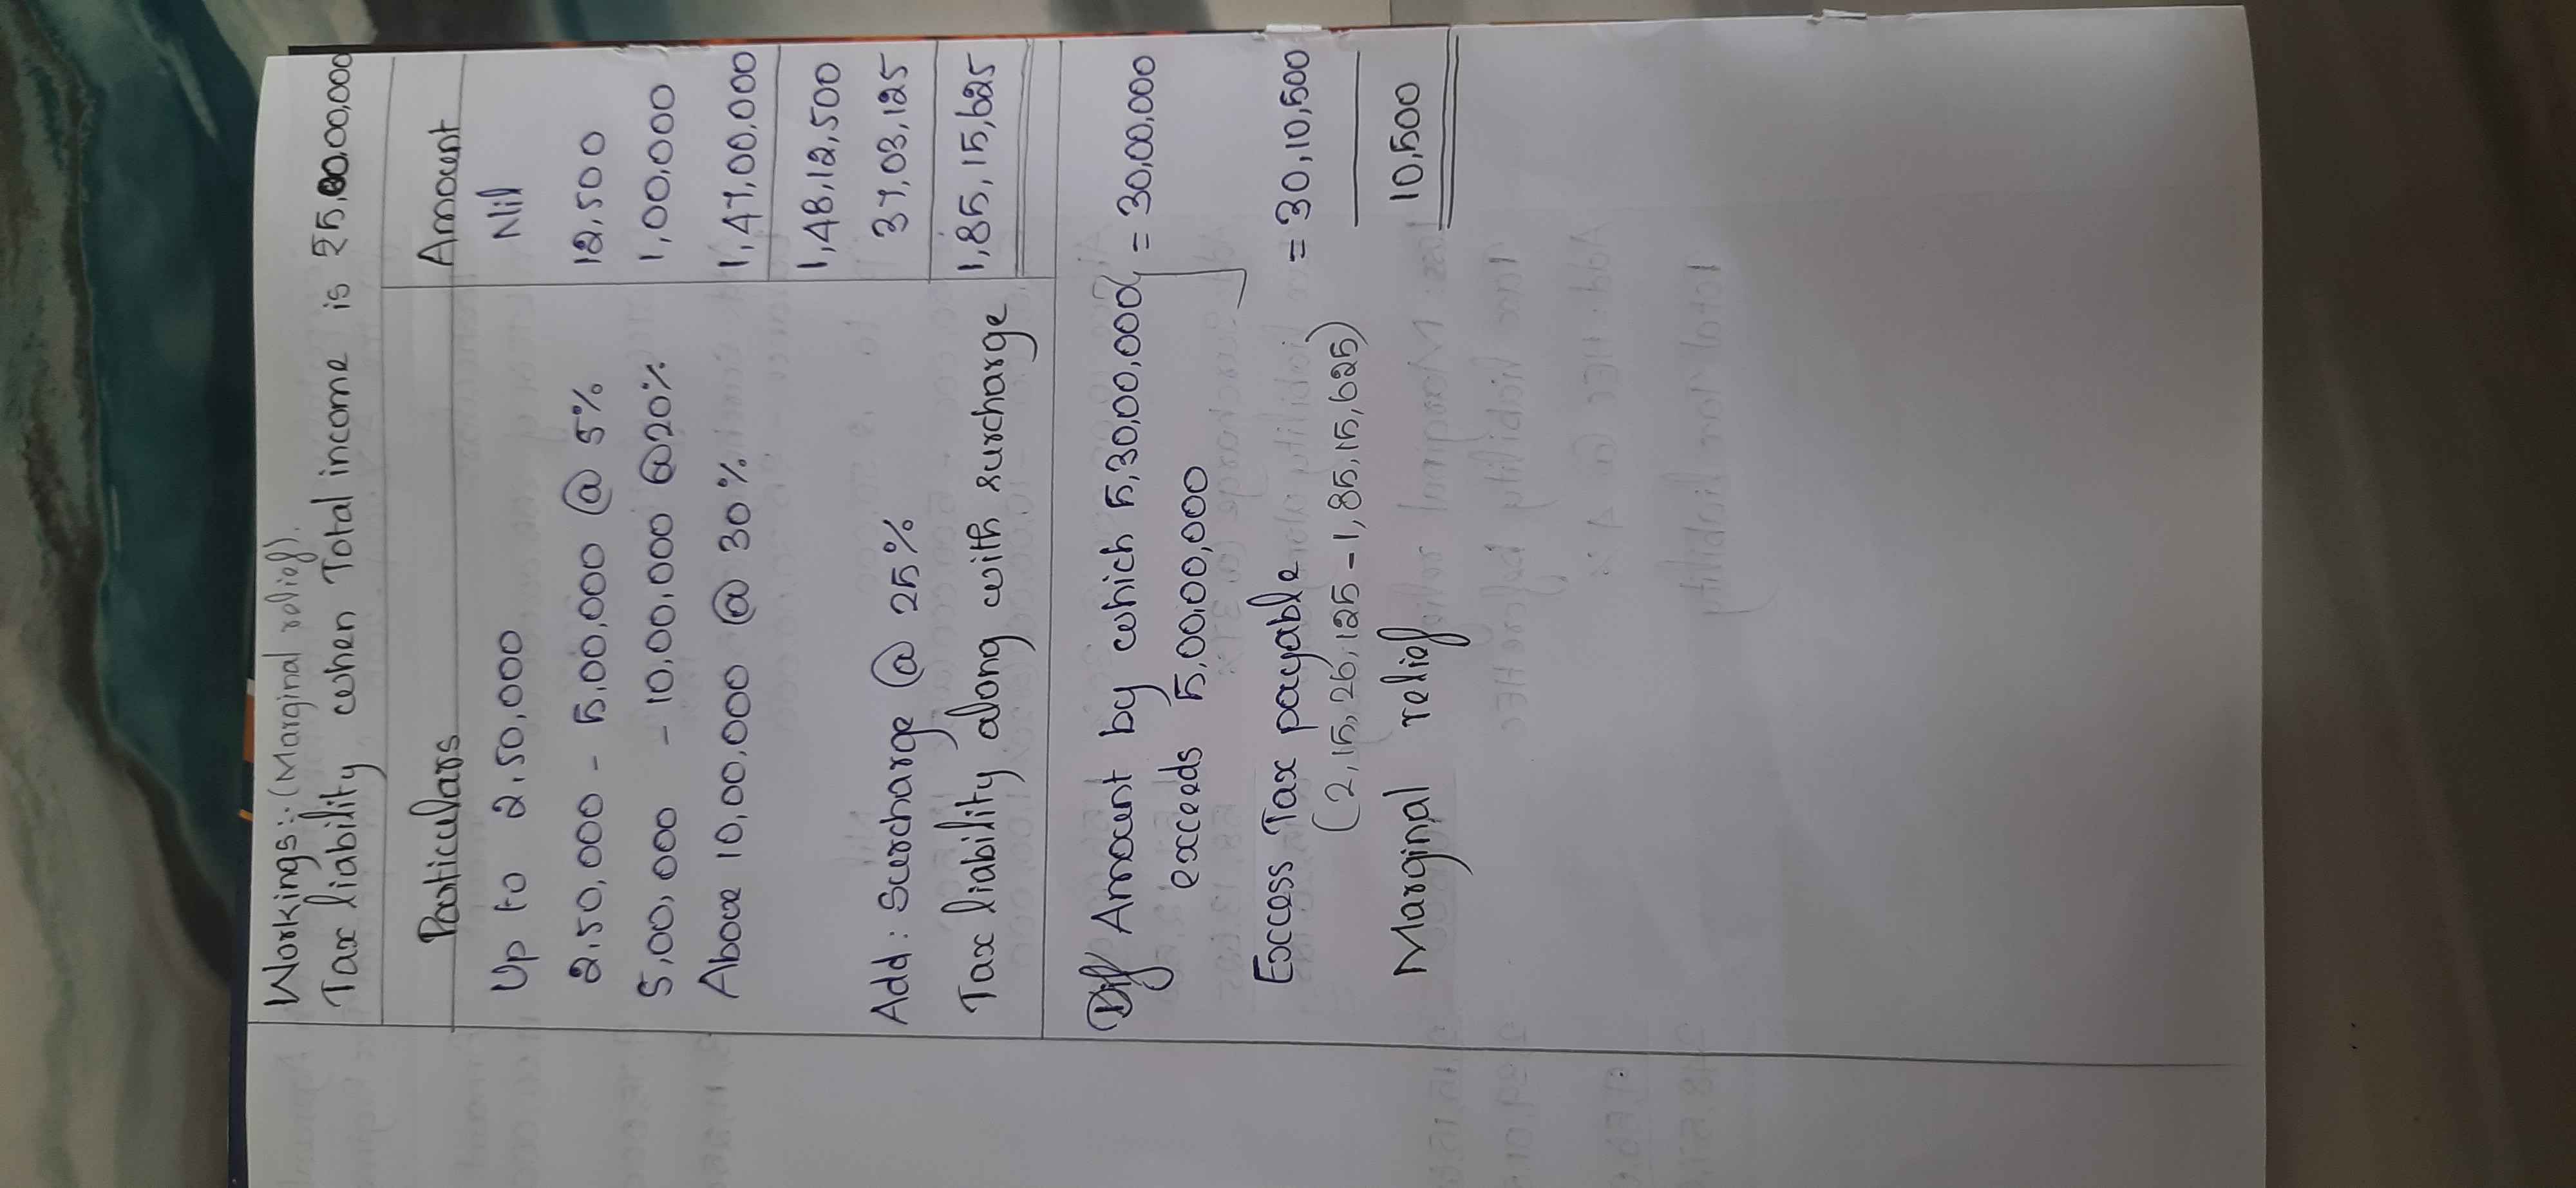 Workings:- (Marginal relief).
Tax liability when Total income is ₹5,00,00,000
Particulars Amount
Up to 2,50,000 Nil
2,50,000 - 5,00,000 @ 5% 12,500
5,00,000 - 10,00,000 @20% 1,00,000
Above 10,00,000 @ 30% 1,47,00,000
1,48,12,500
Add: Surcharge @ 25% 37,03,125
Tax liability along with surcharge 1,85,15,625
Amount by which 5,30,00,000 = 30,00,000
exceeds 5,00,00,000
Excess Tax payable = 30,10,500
(2,15,26,125 - 1,85,15,625)
Marginal relief 10,500